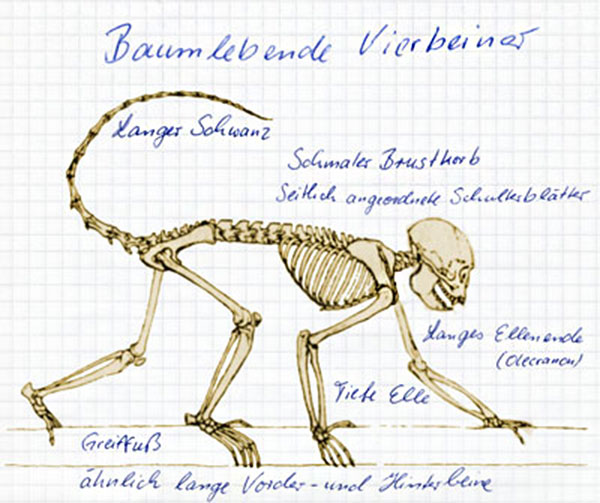 Baumlebende Vierbeiner
Langer Schwanz
Schmaler Brustkorb
Seitlich angeordnete Schulterblätter
Langes Ellenende
(Olecranon)
Tiefe Elle
Greiffuß
ähnlich lange Vorder- und Hinterbeine